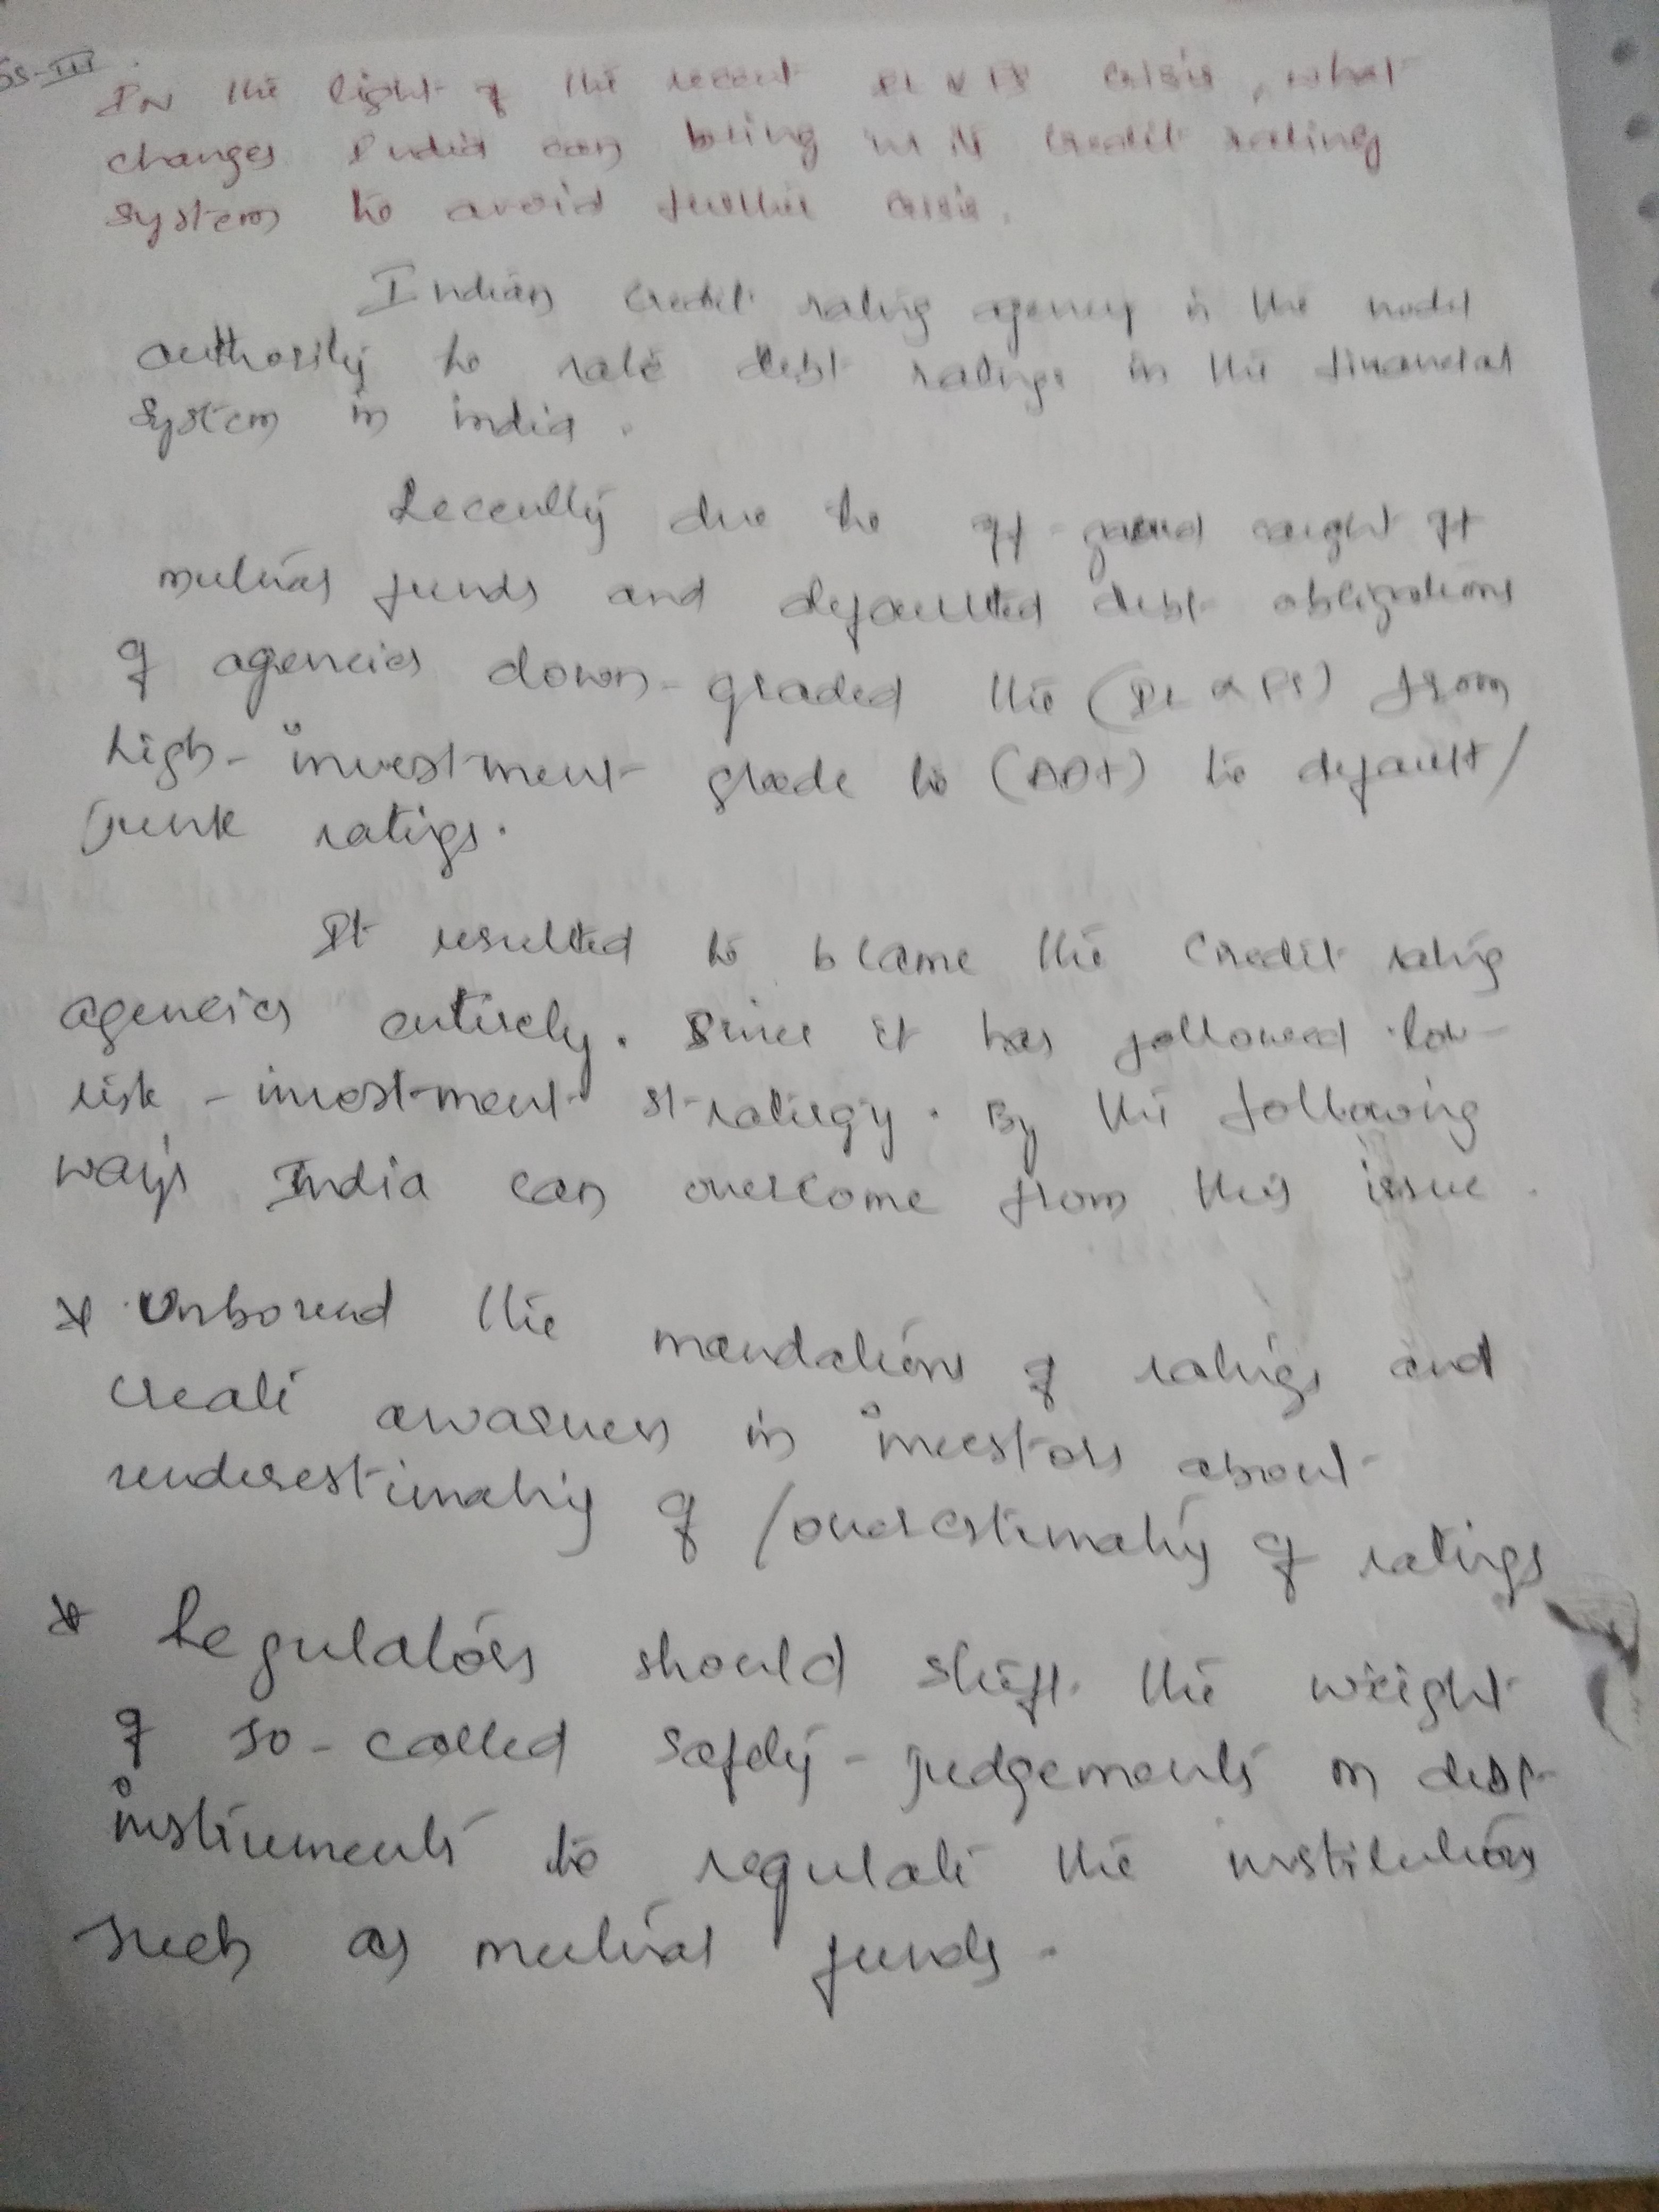 GS-III
IN the light of the recent IL & FS crisis, what
changes India can bring in it credit rating
system to avoid further crisis.
Indian credit rating agency is the nodal
authority to rate debt ratings in the financial
system in india.
Recently due to off-guard caught of
mutual funds and defaulted debt obligations
of agencies down-graded the (IL & FS) from
high-investment grade to (AA+) to default/
junk ratings.
It resulted to blame the credit rating
agencies entirely. Since it has followed low-
risk-investment strategy. By the following
ways India can overcome from this issue.
* Unbound the mandations of ratings and
create awarness in investors about
underestimating of/overestimating of ratings
* Regulators should shift the weight
of so-called safety-judgements on debt
instruments to regulate the institutions
such as mutual funds.